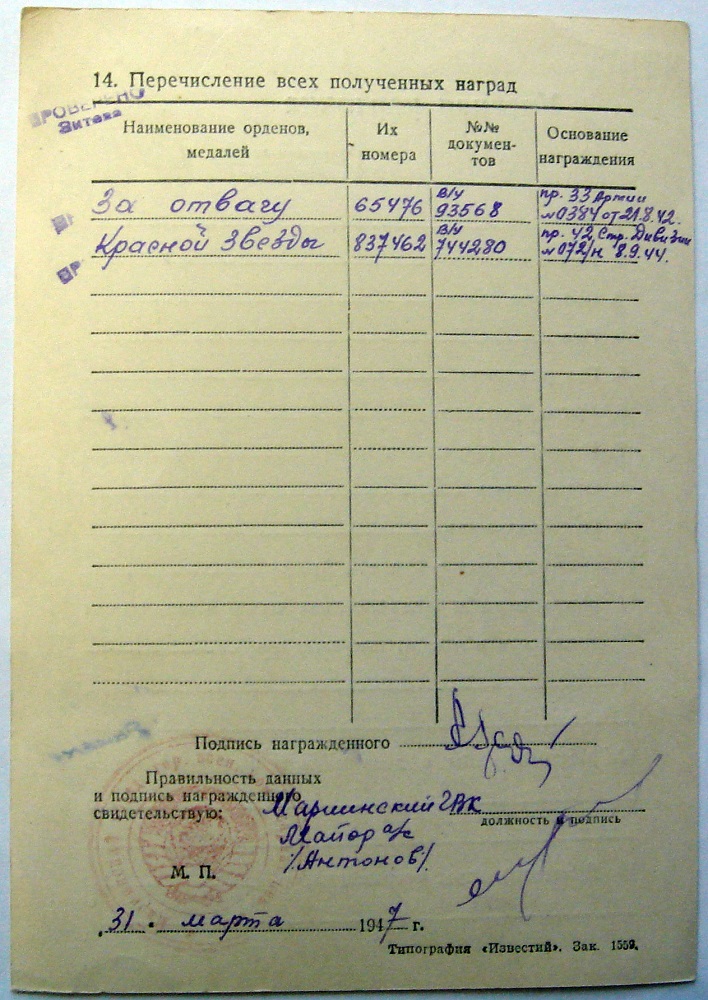 14. Перечисление всех полученных наград
ПРОВЕРЕНО
Наименование орденов, медалей
Их номера
№№ докумен-тов
Основание награждения
За отвагу 65476 в/у 93568 пр. 33 Армии №0384 от 21.8.42.
Красной Звезды 837462 в/у 744280 пр. 42 Стр. Дивизии №072/н 8.9.44.
Подпись награжденного
Правильность данных
и подпись награжденного
свидетельствую:
Мариинский ГВК
должность и подпись
Майор а/с
/Антонов/.
М. П.
31 марта 1947 г.
Типография «Известий». Зак. 1559.